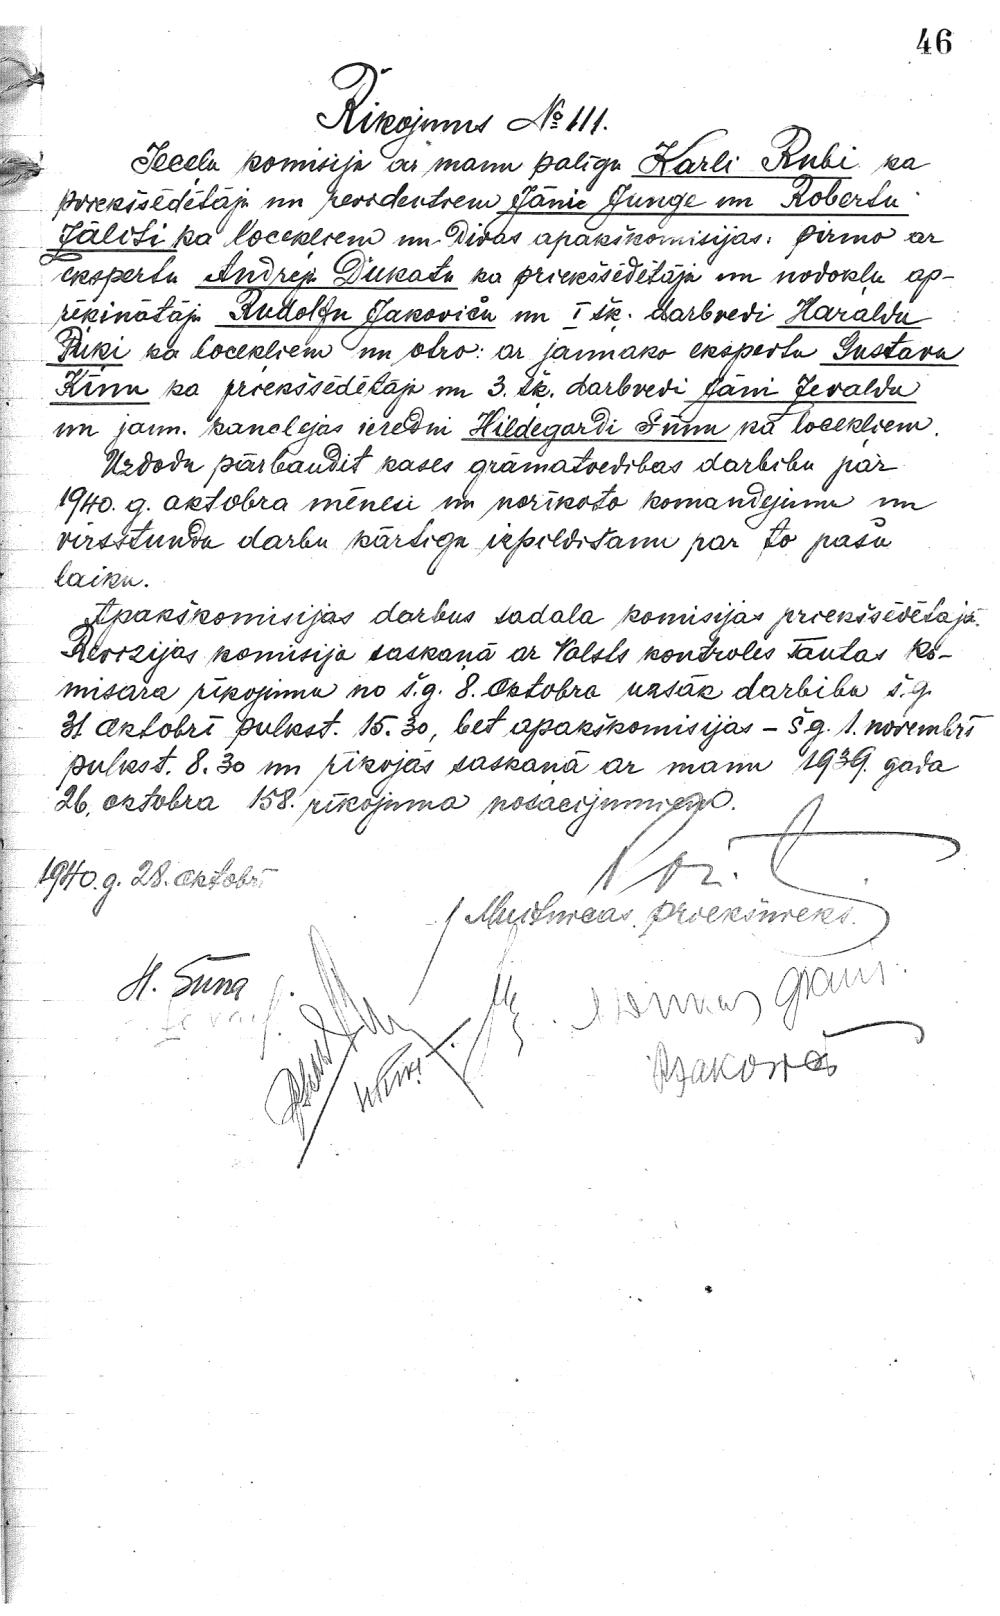 46
Rīkojums № 111.
Ieceļu komisiju ar manu palīgu Kārli Rubi kā
priekšsēdētāju un revidentiem Jāni Junge un Robertu
Jālīti kā locekļiem un divas apakškomisijas: pirmo ar
ekspertu Andreju Dukatu kā priekšsēdētāju un nodokļu ap-
rēķinātāju Rudolfu Jakoviču un I šķ. darbvedi Haraldu
Puķi kā locekļiem un otro: ar jaunāko ekspertu Gustavu
Ķinu kā priekšsēdētāju un 3. šķ. darbvedi Jāni Jevaldu
un jaun. kancelejas ierēdni Hildegardi Sūnu kā locekļiem.
Uzdodu pārbaudīt kases grāmatvedības darbību par
1940. g. oktobra mēnesi un norīkoto komandējumu un
virsstundu darbu kārtīgu izpildīšanu par to pašu
laiku.
Apakškomisijas darbus sadala komisijas priekšsēdētājs.
Revīzijas komisija saskaņā ar Valsts kontroles Tautas ko-
misara rīkojumu no š.g. 8. oktobra uzsāk darbību š.g.
31 oktobrī pulkst. 15.30, bet apakškomisijas – š.g. 1. novembrī
pulkst. 8.30 un rīkojās saskaņā ar manu 1939. gada
26. oktobra 158. rīkojuma nosacījumiem.
1940. g. 28. oktobrī
/ Muitnīcas priekšnieks.
H. Sūna
RJakovičs